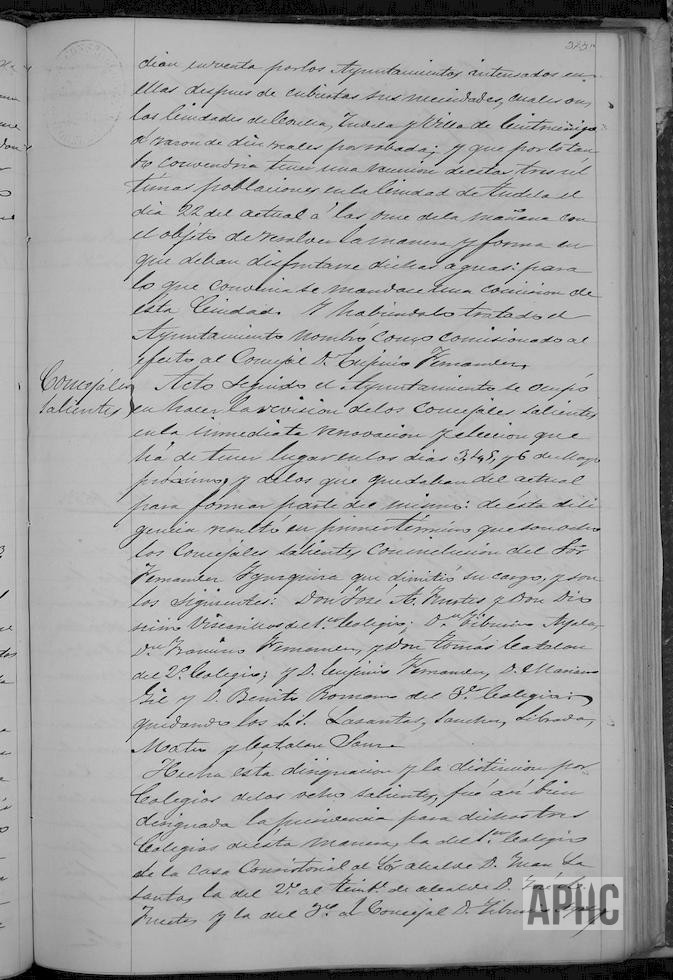 dian en venta por los Ayuntamientos interesados en
ellas despues de cubiertas sus necesidades, cuales son,
las Ciudades de Corella, Tudela y Villa de Cintruénigo
á razon de diez reales por robada; y que por lo tan
to convendria tener una reunion de estas tres úl
timas poblaciones en la Ciudad de Tudela el
dia 22 del actual á las once de la mañana con
el objeto de resolver la manera y forma en
que deban disfrutarse dichas aguas: para
lo que convenia se mandase una comision de
esta Ciudad. Y habiendolo tratado el
Ayuntamiento nombró como comisionado al
efecto al Concejal D. Eugenio Fernandez.
Concejales
salientes
Acto seguido el Ayuntamiento se ocupó
en hacer la revision de los Concejales salientes
en la inmediata renovacion y eleccion que
há de tener lugar en los dias 3, 4, 5, y 6 de Mayo
próximo, y de los que quedaban del actual
para formar parte del mismo: de ésta dili
gencia resultó en primer término que son ocho
los Concejales salientes con inclusion del Sór
Fernandez que dimitió su cargo, y son
los siguientes: Don José A. Fuertes y Don Dio
nisio del 1er Colegio; Dn Tiburcio Ayala,
Dn Fernandez, y Don Tomas Catalan
del 2º Colegio; y D. Eugenio Fernandez, D. Mariano
Gil y D. Benito Romano del 3er Colegio:
quedando los S.S. Lasantas, Sanchez, Librada,
Mateo y Catalan Sanz.
Hecha esta designacion y la distincion por
Colegios de los ocho salientes, fué así bien
designada la presidencia para dichos tres
Colegios de ésta manera, la del 1er Colegio
de la casa Consistorial al Sór alcalde D. Juan La
santas, la del 2º al teinte de alcalde D. José A.
Fuertes y la del 3º al Concejal D. Tiburcio Ayala
APHC